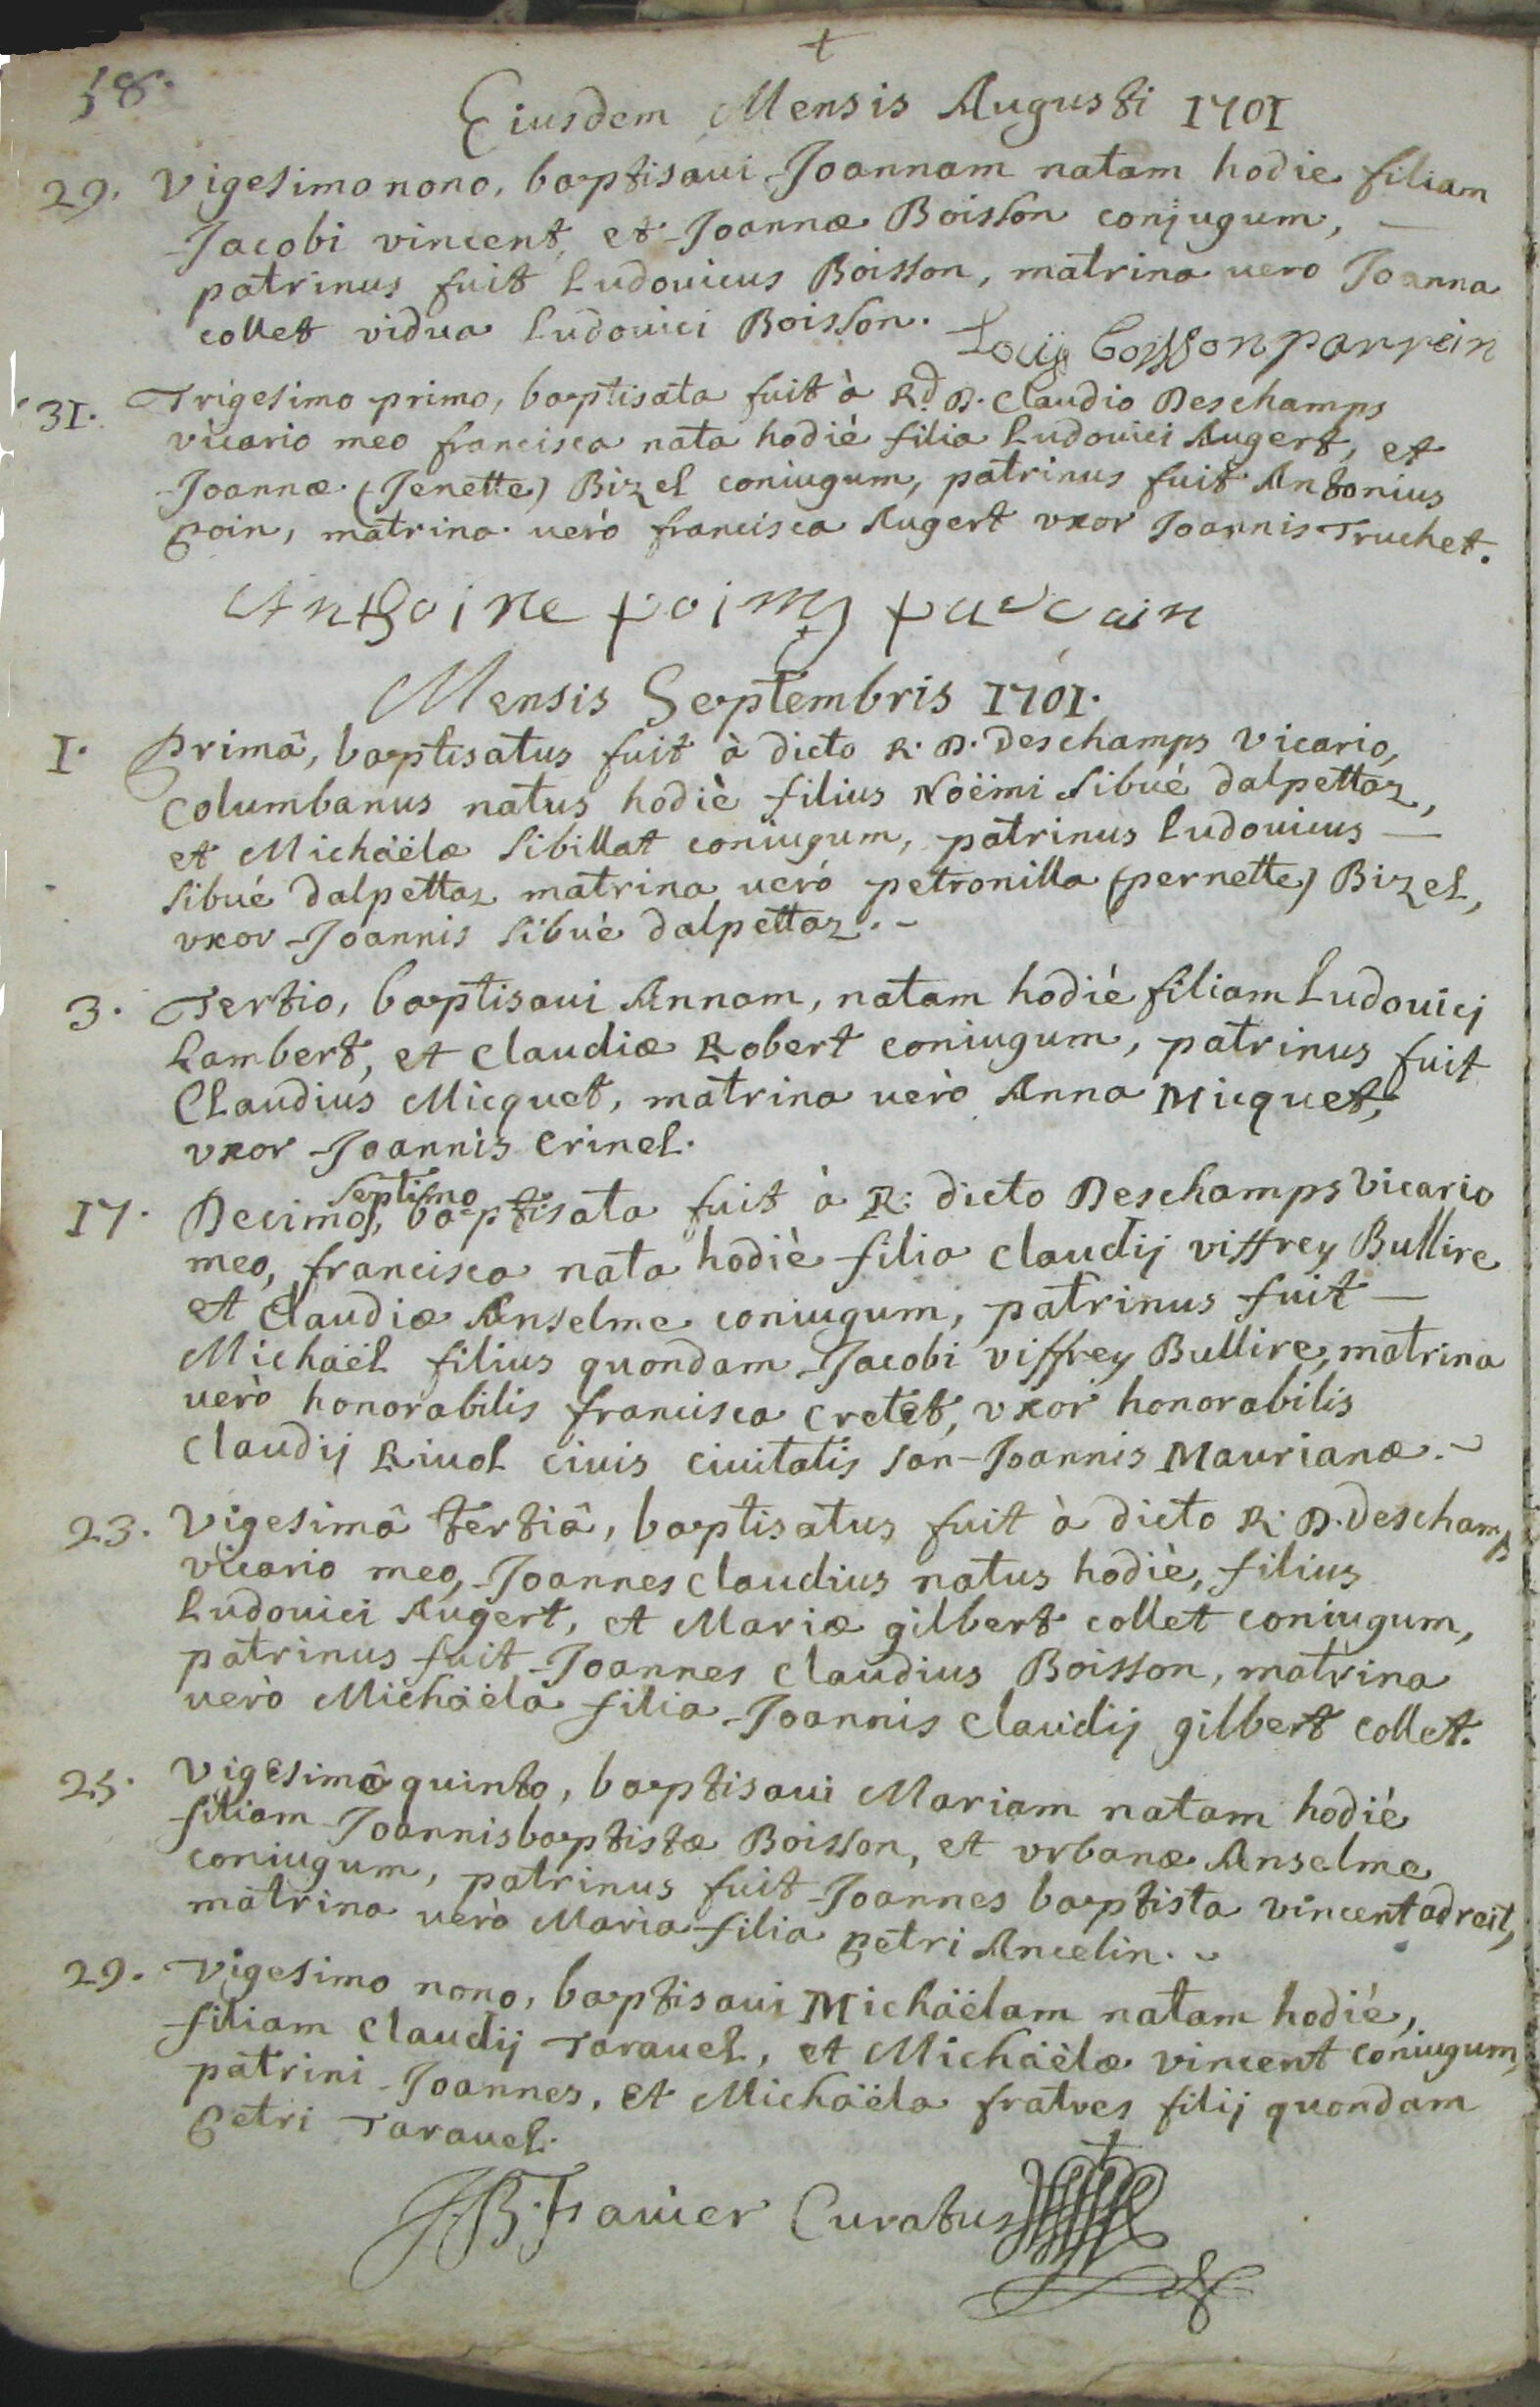 58.
Eiusdem Mensis Augusti 1701
29. Vigesimo nono, baptisaui Joannam natam hodie filiam
Jacobi vincent, et Joannæ Boisson conjugum,
patrinus fuit Ludouicus Boisson, matrina uero Joanna
collet vidua Ludouici Boisson.
Louis boisson parrein
31. Trigesimo primo, baptisata fuit à Rd. D. Claudio Deschamps
vicario meo francisca nata hodiè filia Ludouici Augert, et
Joannæ (Jenette) Bizel coniugum, patrinus fuit Antonius
poin, matrina uerò francisca Augert vxor Joannis Truchet.
Anthoine poing parrain
Mensis Septembris 1701.
1. Primâ, baptisatus fuit à dicto R. D. Deschamps Vicario,
Columbanus natus hodiè filius Noëmi Sibué dalpettaz,
et Michäelæ Sibillat coniugum, patrinus Ludouicus
Sibué dalpettaz matrina ueró petronilla (pernette) Bizel,
vxor Joannis Sibuè dalpettaz.
3. Tertio, baptisaui Annam, natam hodiè filiam Ludouicj
Lambert, et Claudiæ Robert coniugum, patrinus fuit
Claudius Micquet, matrina uerò Anna Micquet,
vxor Joannis Crinel.
17. Decimo septimo, baptisata fuit à R: dicto Deschamps Vicario
meo, francisca nata hodiè filia Claudij viffrey Bullire
et Claudiæ Anselme coniugum, patrinus fuit
Michäel filius quondam Jacobi viffrey Bullire, matrina
uerò honorabilis francisca Cretet, vxor honorabilis
Claudij Riuol ciuis ciuitatis San-Joannis Maurianæ.
23. Vigesimâ tertiâ, baptisatus fuit à dicto R: D. Deschamps
vicario meo, Joannes Claudius natus hodiè, filius
Ludouici Augert, et Mariæ gilbert collet coniugum,
patrinus fuit Joannes Claudius Boisson, matrina
uerò Michäela filia Joannis Claudij gilbert collet.
25. Vigesimo quinto, baptisaui Mariam natam hodiè
filiam Joannisbaptistæ Boisson, et vrbanæ Anselme
coniugum, patrinus fuit Joannes baptista vincent adroit,
matrina uerò Maria filia petri Ancelin.
29. Vigesimo nono, baptisaui Michäelam natam hodié,
filiam Claudij Tarauel, et Michäelæ vincent coniugum,
patrini Joannes, et Michäela fratres filij quondam
petri Tarauel.
Curatus